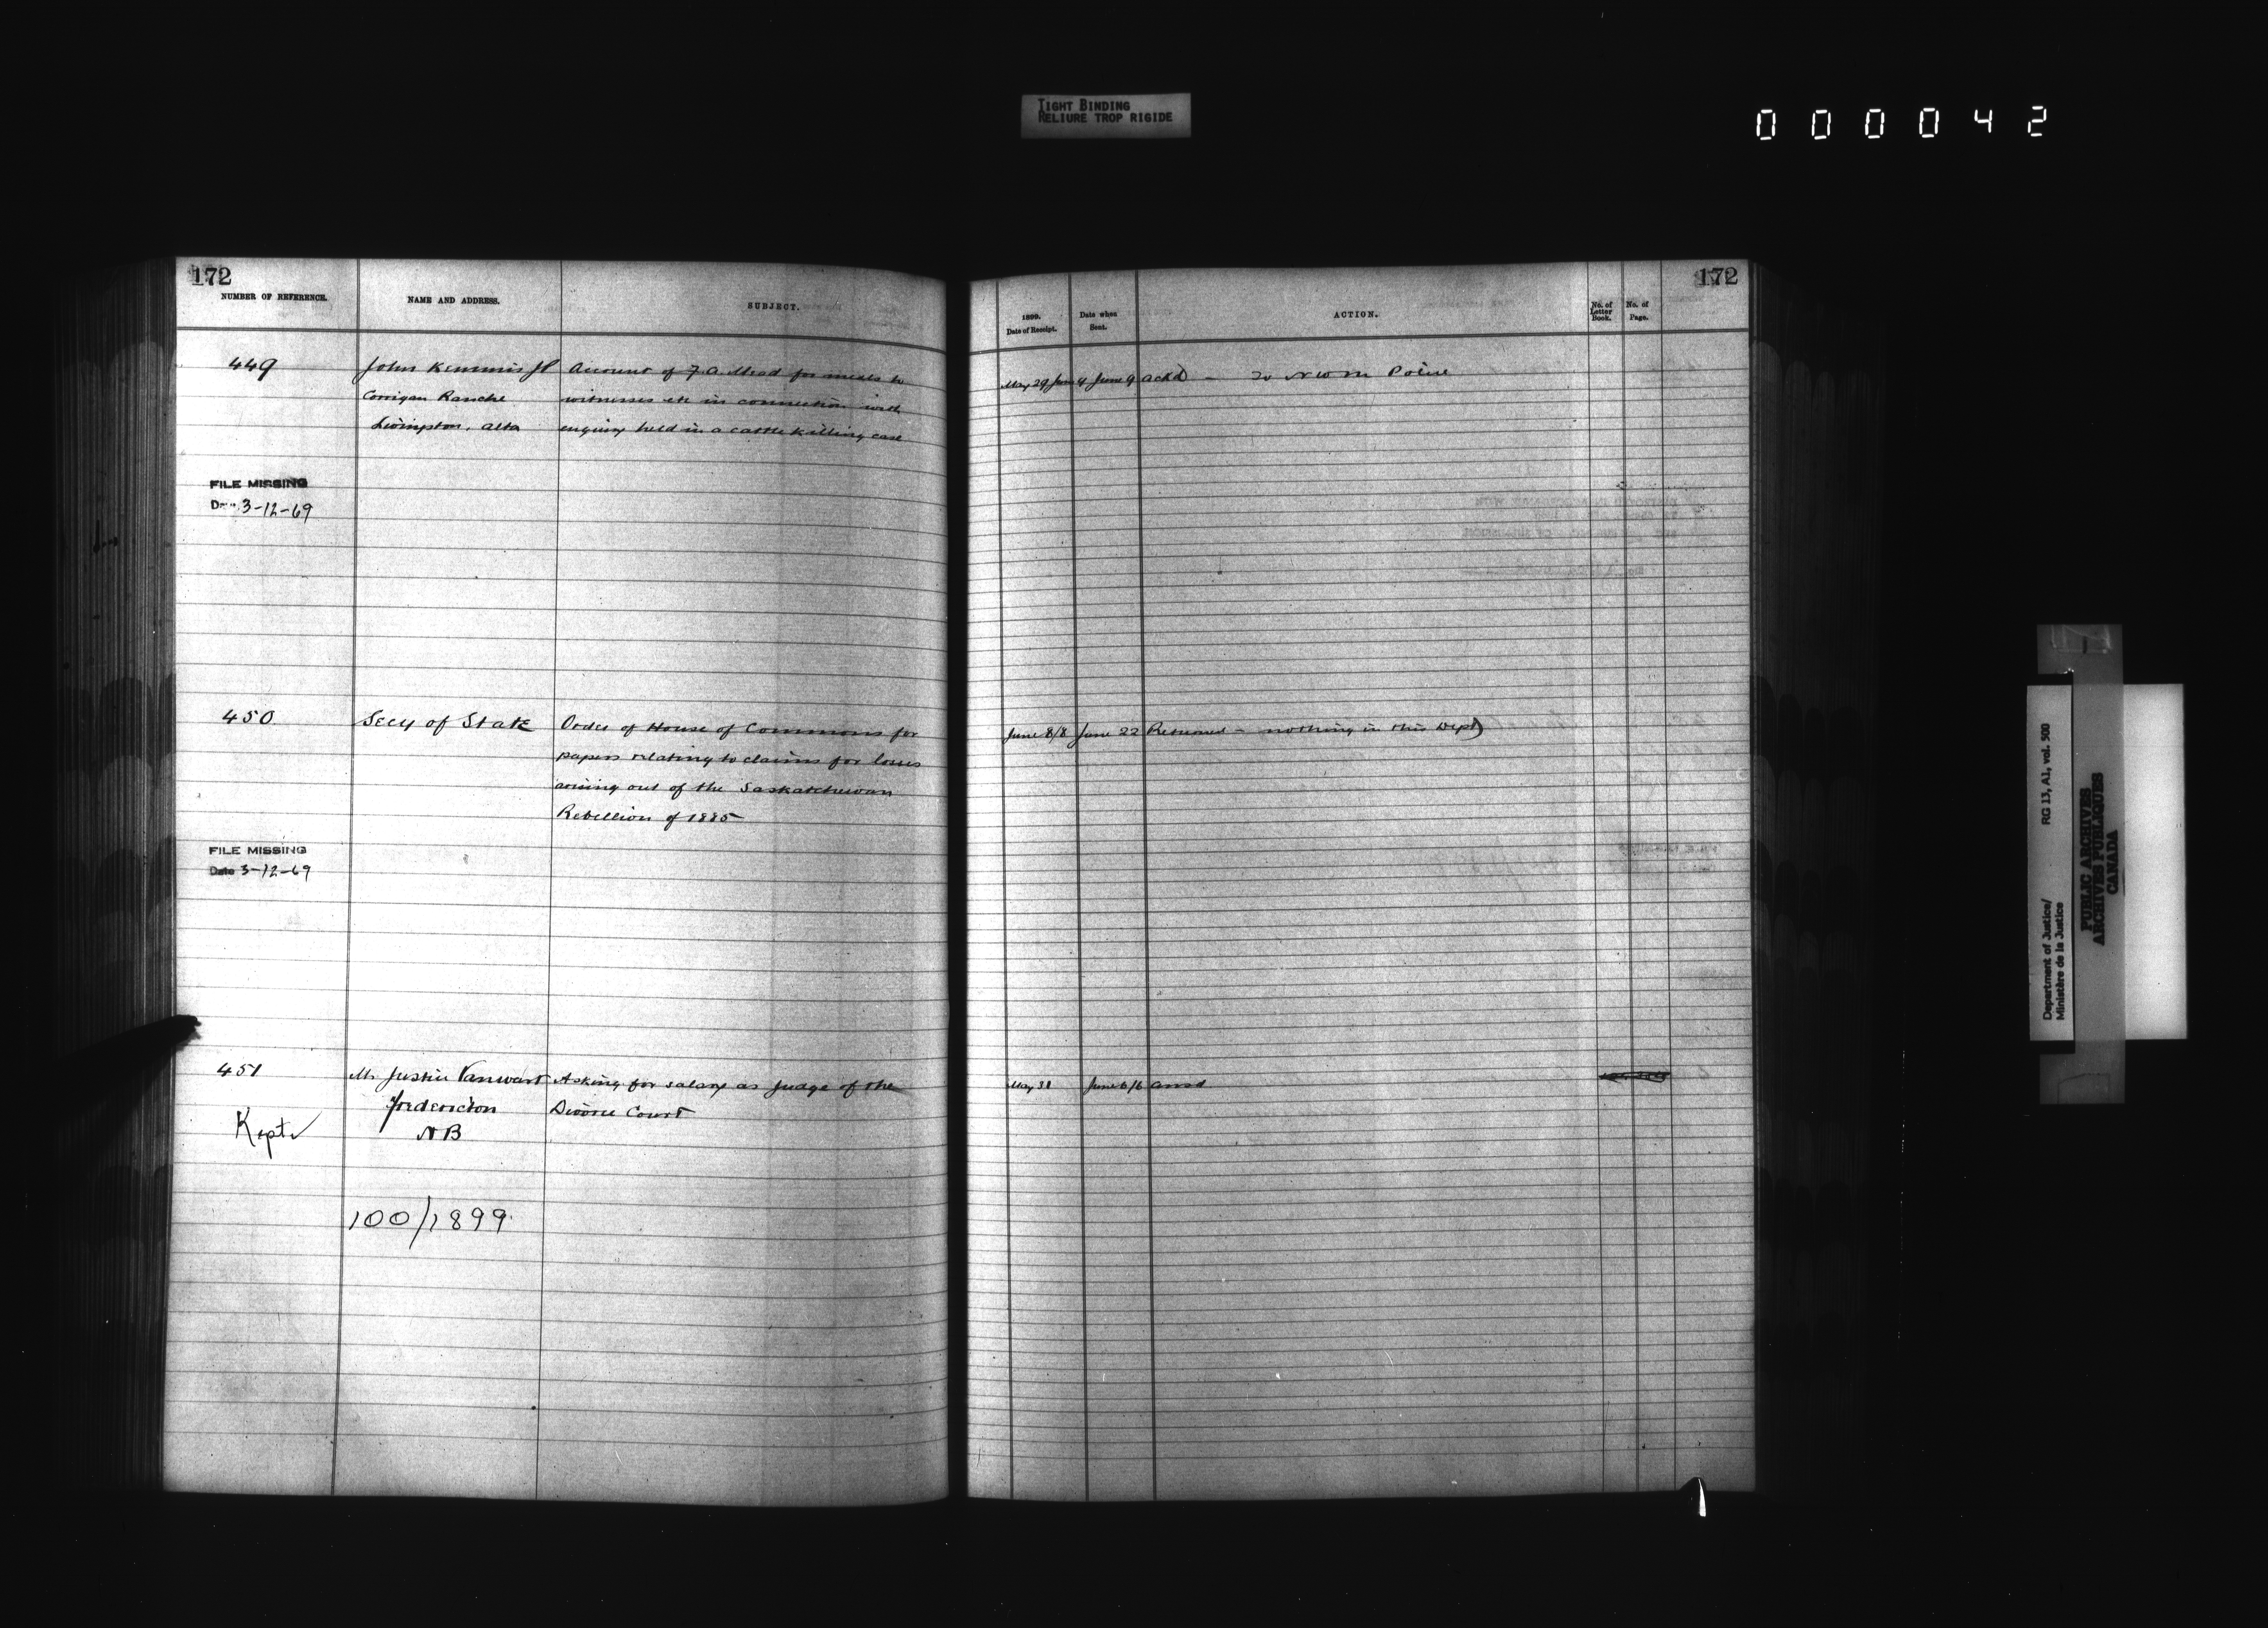 TIGHT BINDING
RELIURE TROP RIGIDE
000042
172
NUMBER OF REFERENCE.
NAME AND ADDRESS.
SUBJECT.
449
John Kemmis JP
Account of F. A. Mead for meals to
Corrigan Ranche
witnesses etc in connection with
Livingston, Alta
enquiry held in a cattle killing case
FILE MISSING
Date 3-12-69
450
Secy of State
Order of House of Commons for
papers relating to claims for losses
arising out of the Saskatchewan
Rebellion of 1885
FILE MISSING
Date 3-12-69
451
Mr Justice Vanwart
Asking for salary as judge of the
Fredericton
Divorce Court
Kept
NB
100/1899
172
1899.
Date of Receipt.
Date when
Sent.
ACTION.
No. of
Letter
Book.
No. of
Page.
May 29 June 9 ackd - To NWM Police
June 8/8 June 22 Returned - nothing in this Dept
May 31 June 6/6 ansd
Department of Justice/
Ministère de la Justice
RG 13, A1, vol. 500
PUBLIC ARCHIVES
ARCHIVES PUBLIQUES
CANADA